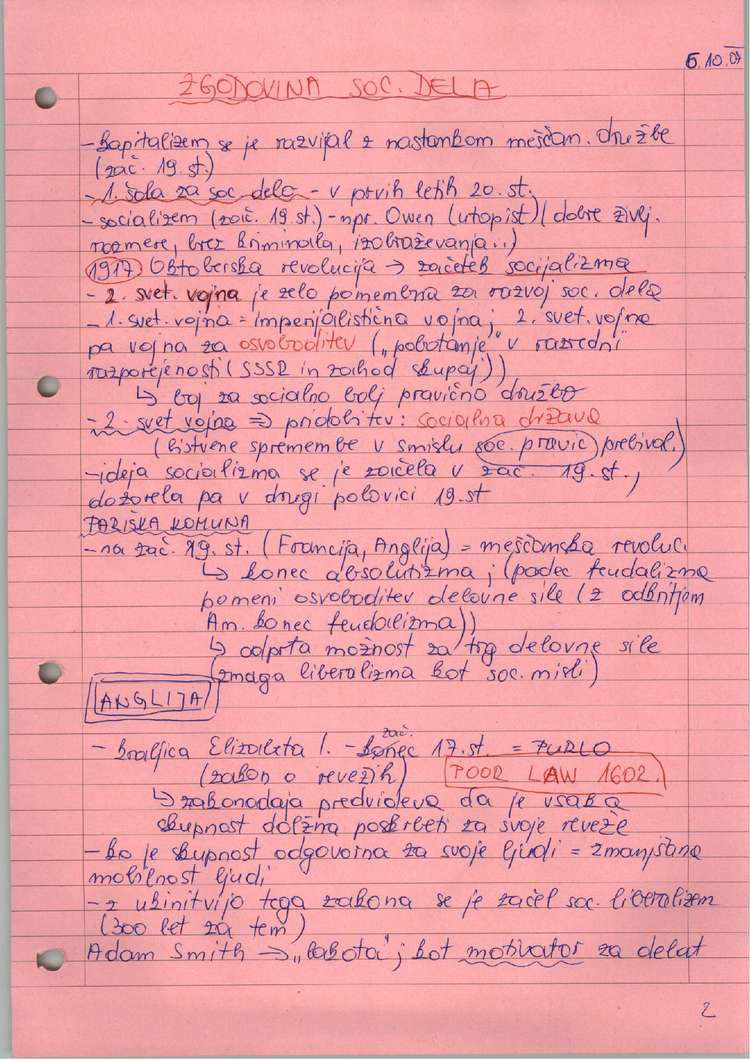 5.10.07
ZGODOVINA SOC. DELA
- Kapitalizem se je razvijal z nastankom meščan. družbe
(zač. 19. st.)
- 1. šola za soc. delo - v prvih letih 20. st.
- socializem (zač. 19. st.) - npr. Owen (utopist) (dobre življ.
razmere, brez kriminala, izobraževanja..)
1917 Oktoberska revolucija → začetek socijalizma
- 2. svet. vojna je zelo pomembna za razvoj soc. dela
- 1. svet. vojna = imperijalistična vojna; 2. svet. vojna
pa vojna za osvoboditev („pobotanje" v razredni
razporejenosti (SSSR in zahod skupaj))
↳ boj za socialno bolj pravično družbo
- 2. svet vojna ⇒ pridobitev: socialna država
(bistvene spremembe v smislu soc. pravic prebival.)
- ideja socializma se je začela v zač. 19. st.,
dozorela pa v drugi polovici 19. st
PARIŠKA KOMUNA
- na zač. 19. st. (Francija, Anglija) = meščanska revoluc.
↳ konec absolutizma; (padec feudalizma
pomeni osvoboditev delovne sile (z odkritjem
Am. konec feudalizma))
↳ odprta možnost za trg delovne sile
(zmaga liberalizma kot soc. misli)
ANGLIJA
- kraljica Elizabeta 1. - konec zač. 17. st. =
(zakon o revežih) POOR LAW 1602.
↳ zakonodaja predvideva da je vsaka
skupnost dolžna poskrbeti za svoje reveže
- ko je skupnost odgovorna za svoje ljudi = zmanjšana
mobilnost ljudi
- z ukinitvijo tega zakona se je začel soc. liberalizem
(300 let za tem)
Adam Smith → „lakota"; kot motivator za delat
2